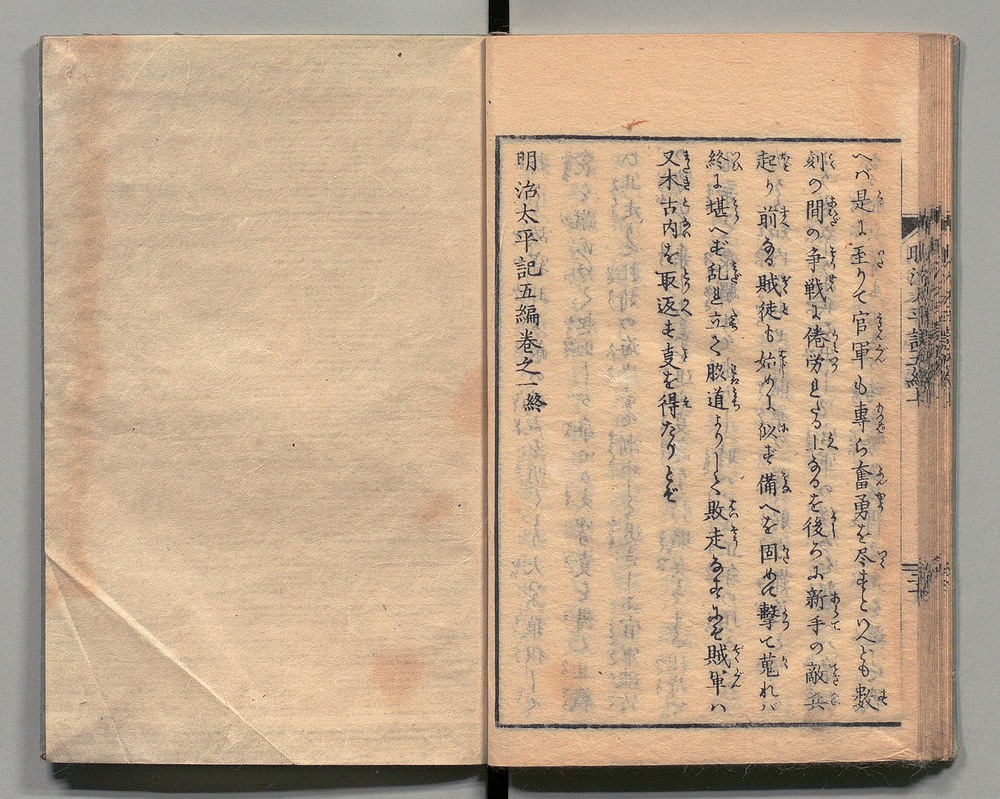 へバ是に至りて官軍も専ら奮勇を尽すといへども数
刻の間の争戦に倦労れたる上なるを後ろに新手の敵兵
起り前なる賊徒も始めに似ず備へを固めて撃て蒐れバ
終に堪へず乱れ立て脇道よりして敗走なすにぞ賊軍ハ
又木古内を取返す事を得たりとぞ
明治太平記五編巻之一終
明治太平記五編